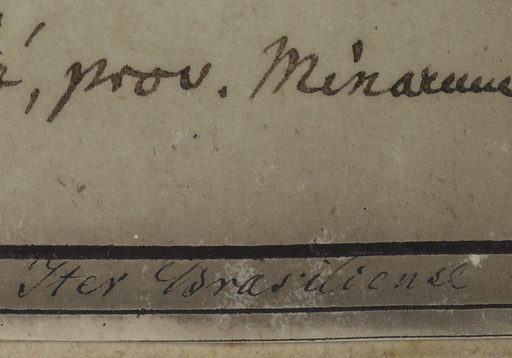 , prov. Minarum
Iter Brasiliense